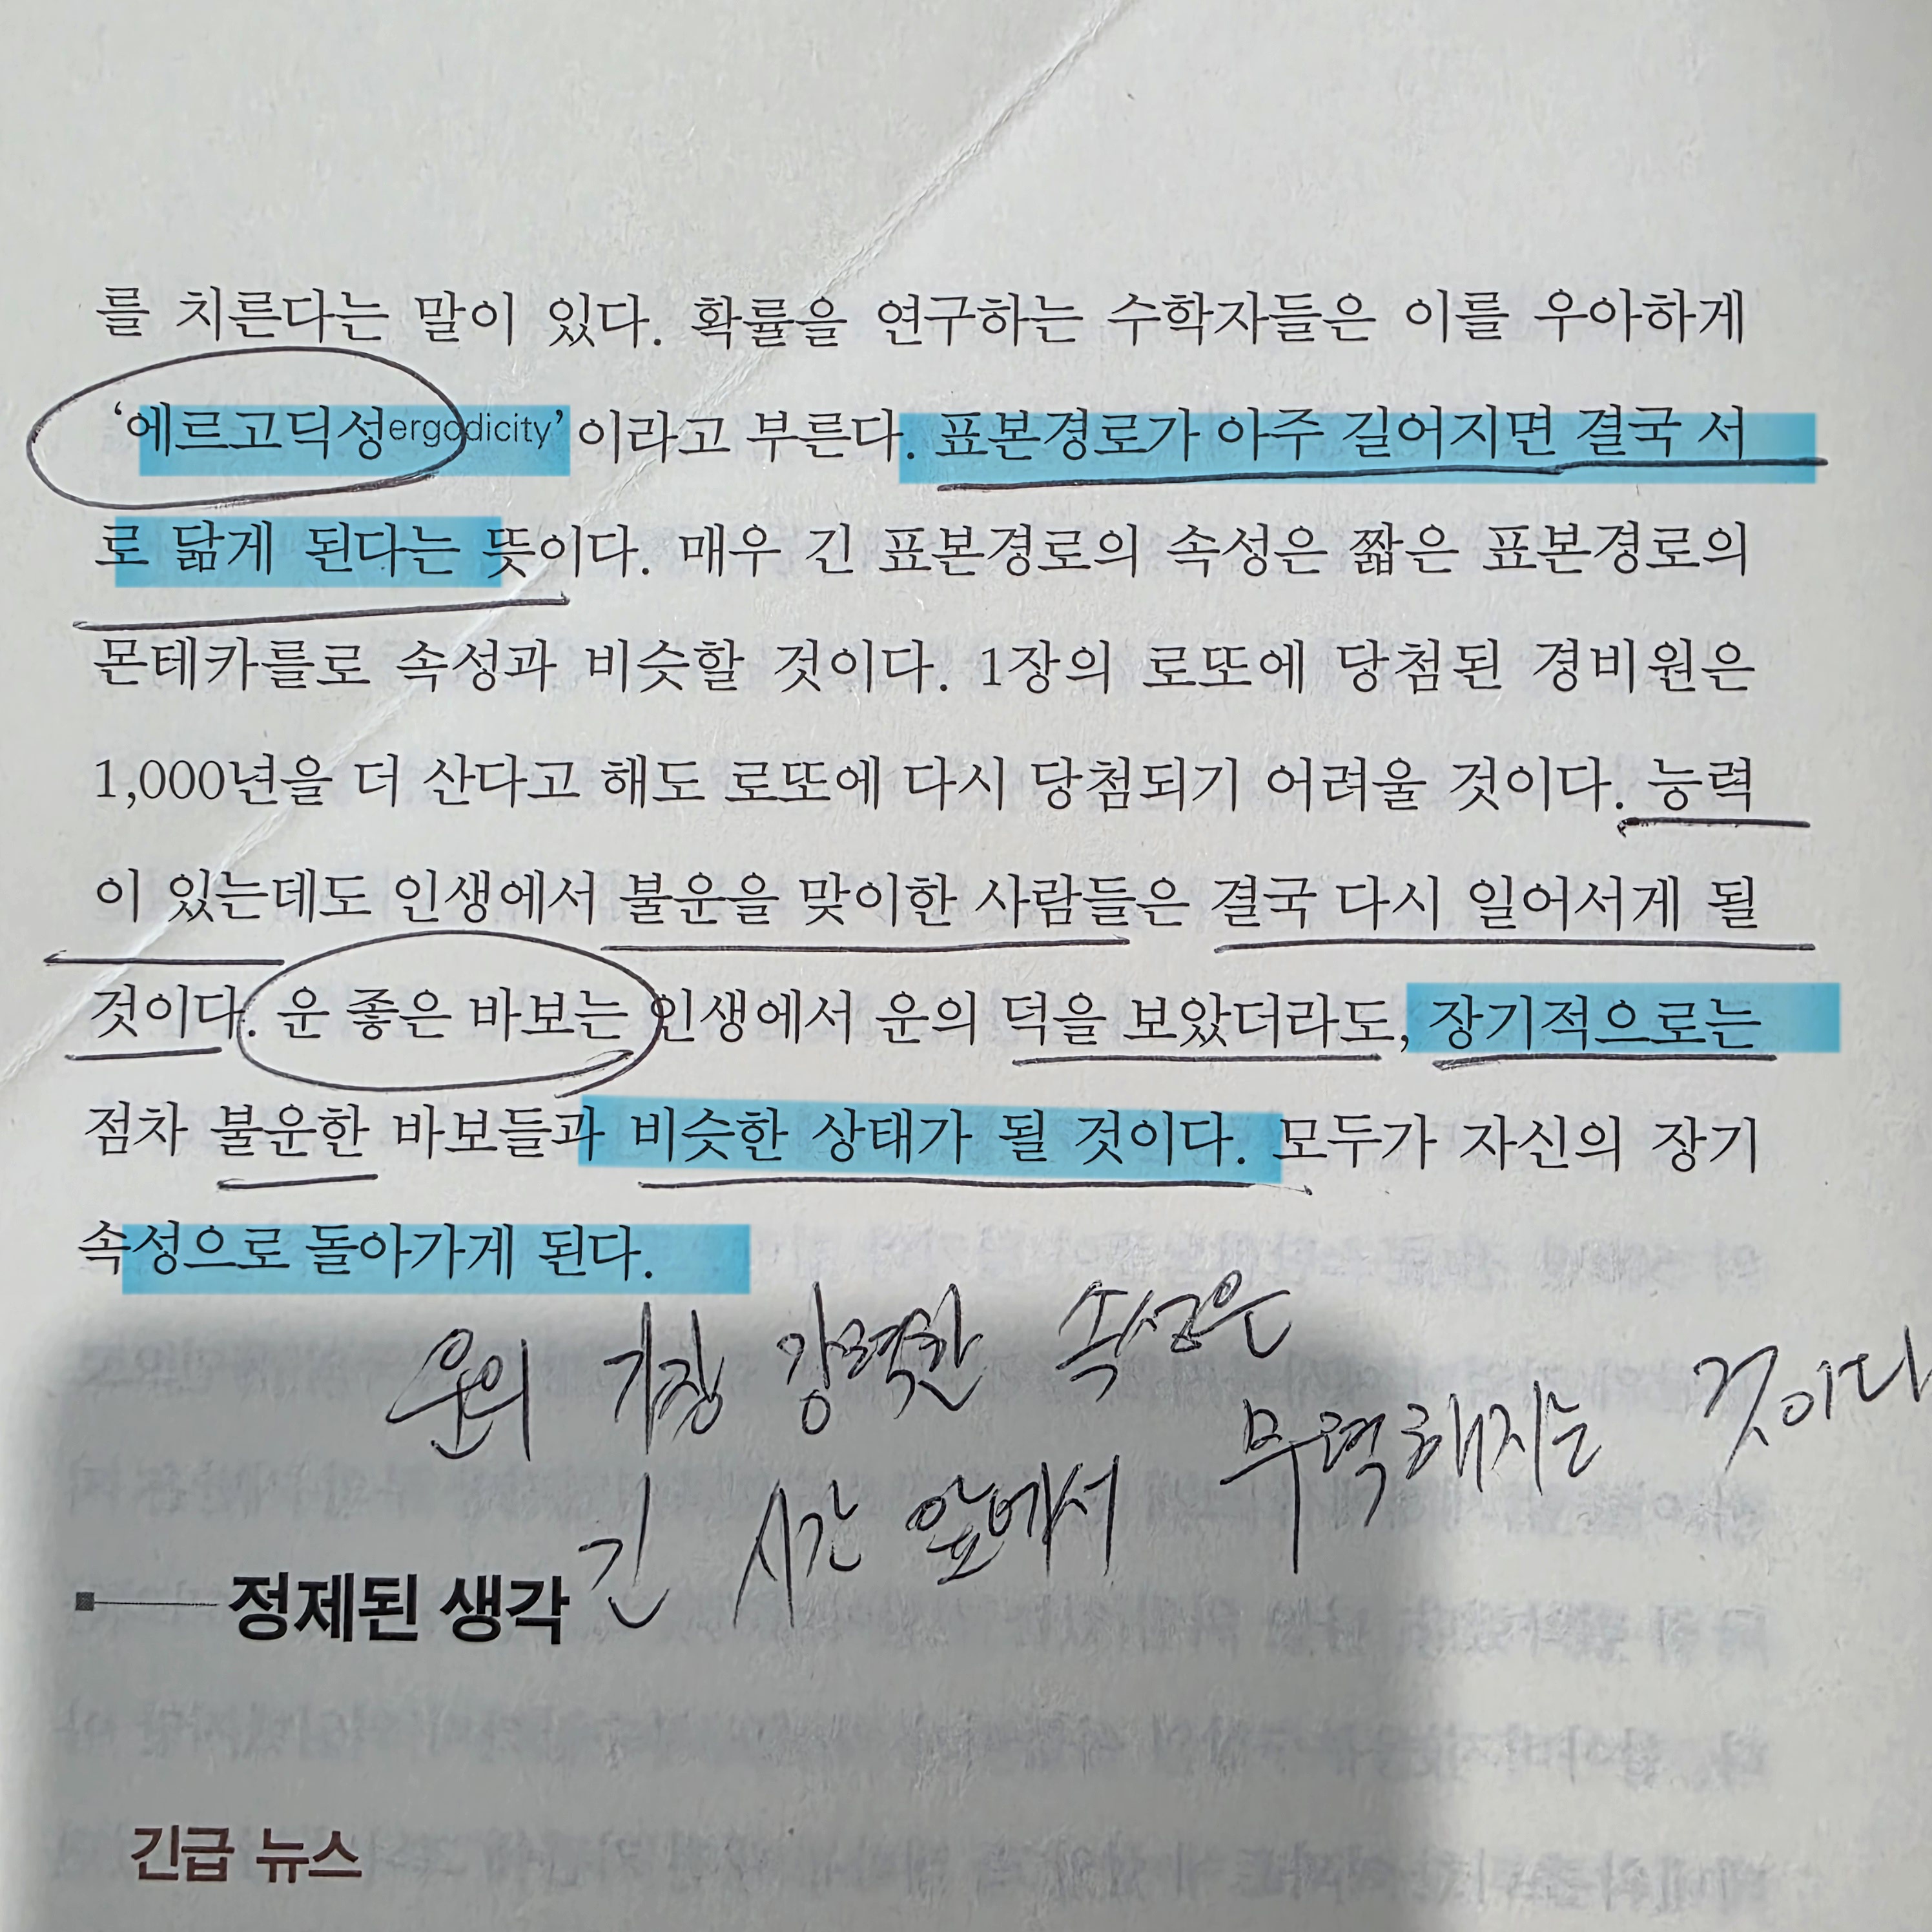 를 치른다는 말이 있다. 확률을 연구하는 수학자들은 이를 우아하게
‘에르고딕성ergodicity’이라고 부른다. 표본경로가 아주 길어지면 결국 서
로 닮게 된다는 뜻이다. 매우 긴 표본경로의 속성은 짧은 표본경로의
몬테카를로 속성과 비슷할 것이다. 1장의 로또에 당첨된 경비원은
1,000년을 더 산다고 해도 로또에 다시 당첨되기 어려울 것이다. 능력
이 있는데도 인생에서 불운을 맞이한 사람들은 결국 다시 일어서게 될
것이다. 운 좋은 바보는 인생에서 운의 덕을 보았더라도, 장기적으로는
점차 불운한 바보들과 비슷한 상태가 될 것이다. 모두가 자신의 장기
속성으로 돌아가게 된다.
운의 가장 강력한 속성은
긴 시간 앞에서 무력해지는 것이다
정제된 생각
긴급 뉴스